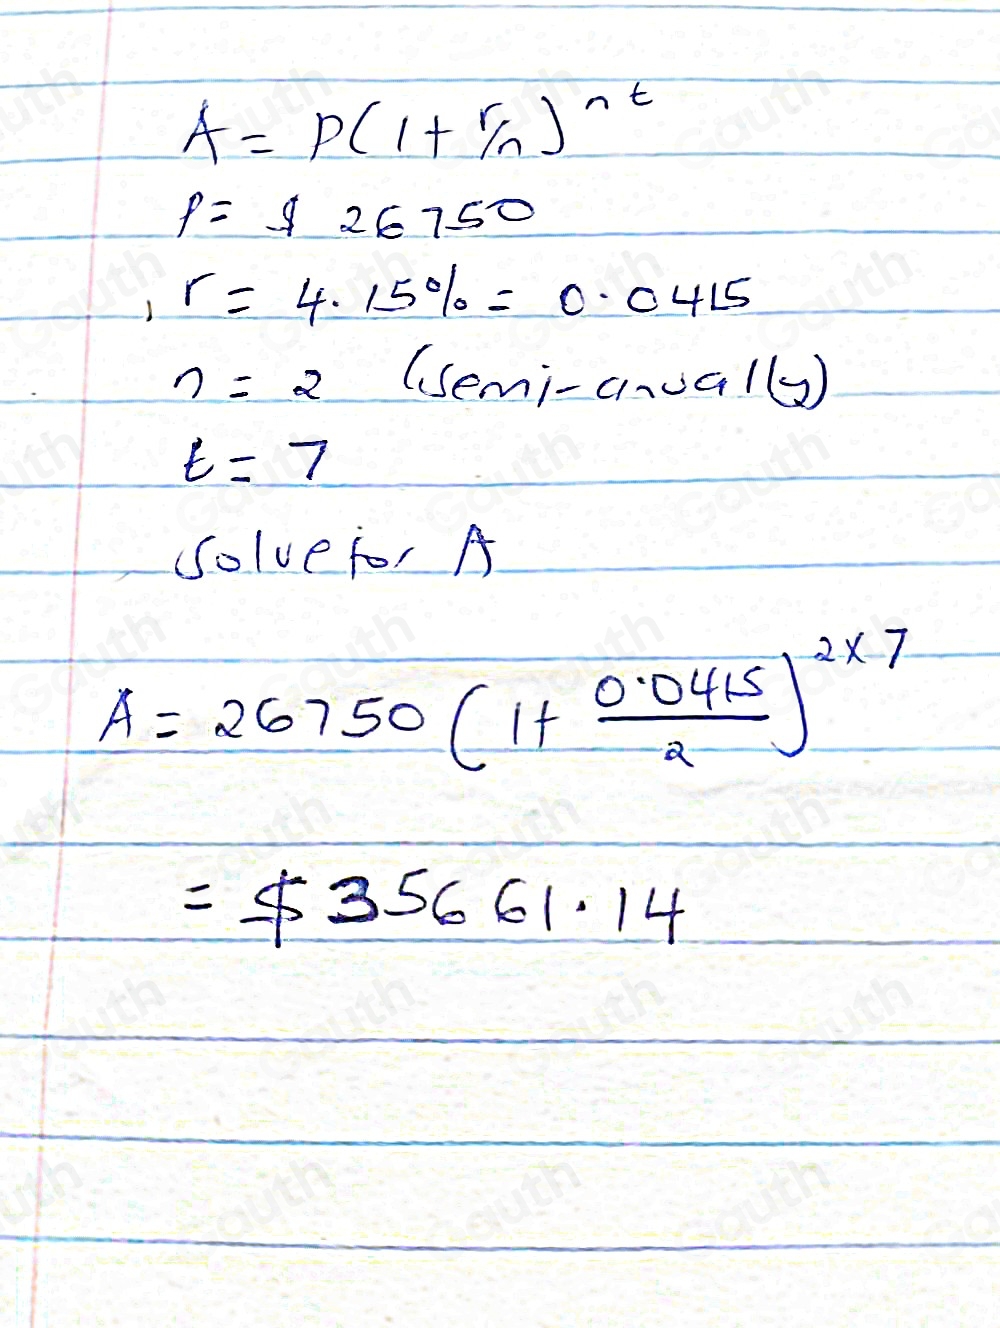 A = P(1 + r/n)^nt
P = $ 26750
, r = 4.15% = 0.0415
n = 2 (semi-anually)
t = 7
Solve for A
A = 26750 (1 + 0.0415/2)^2×7
= $35661.14